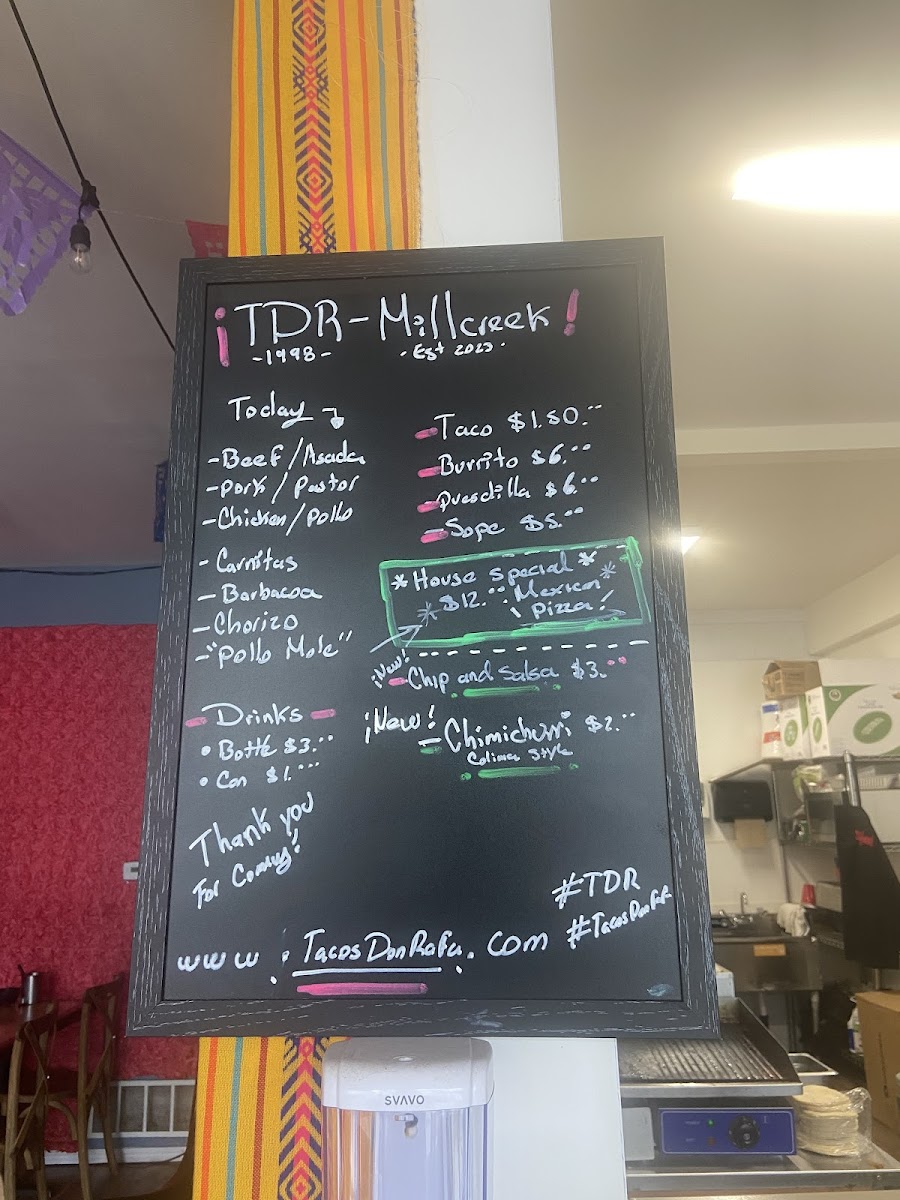 ¡TDR-Millcreek!
-1998-
·Est 2023·
Today
-Beef/Asada
-Pork/Pastor
-Chicken/Pollo
-Carnitas
-Barbacoa
-Chorizo
-"Pollo Mole"
-Drinks-
• Bottle $3.00
• Can $1.00
Thank you
For Coming!
-Taco $1.50
-Burrito $6.00
-Quesdilla $6.00
-Sope $5.00
*House special*
*$12.00 ¡Mexican*
Pizza!
¡New!
-Chip and Salsa $3.00
¡New!
-Chimichurri $2.00
Colima Style
#TDR
#TacosDonRafa
www.TacosDonRafa.com
SVAVO